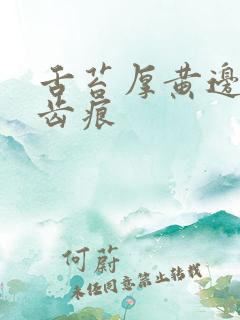 舌苔厚黄邊
齿痕
何蔚
未经同意禁止转载